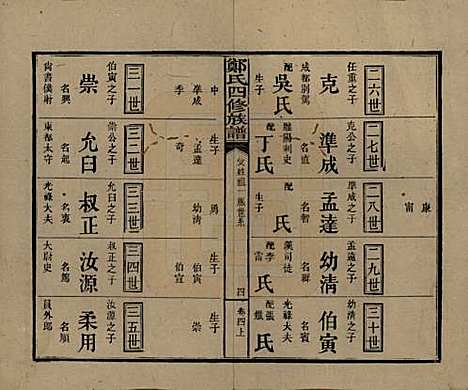 康
甯
二六世
任重之子
克
成都別駕
配
吳氏
生子
二七世
克公之子
準成
名直
雕陽刺史
配
丁氏
生子
二八世
準成之子
孟達
名智
配
氏
生子
二九世
孟達之子
幼清
名稱
漢司徒
配李
氏
生子
三十世
幼清之子
伯寅
名賓
光祿大夫
配張
氏
生子
鄭氏四修族譜
四
卷四上
中
準成
季
孟達
奇
男
幼清
伯寅
伯宣
崇
三一世
伯寅之子
崇
名興
尚書僕射
三二世
崇公之子
允臼
名起
東都太守
三三世
允臼之子
叔正
名衷
光祿大夫
三四世
叔正之子
汝源
名節
大尉史
三五世
汝源之子
柔用
名順
員外郎